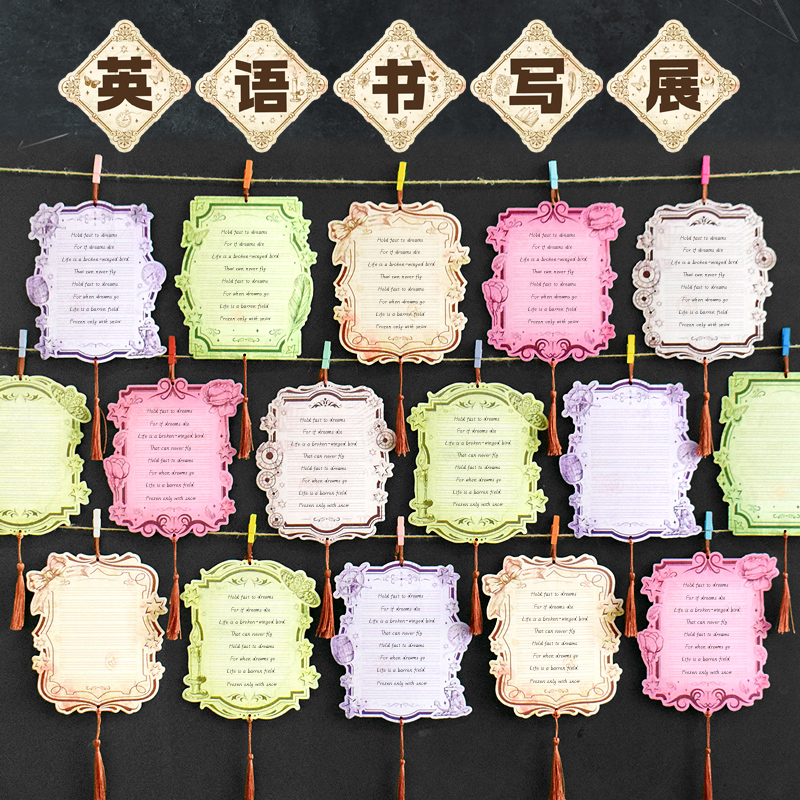 英语书写展
Hold fast to dreams
For if dreams die
Life is a broken-winged bird
That can never fly
Hold fast to dreams
For when dreams go
Life is a barren field
Frozen only with snow
Hold fast to dreams
For if dreams die
Life is a broken-winged bird
That can never fly
Hold fast to dreams
For when dreams go
Life is a barren field
Frozen only with snow
Hold fast to dreams
For if dreams die
Life is a broken-winged bird
That can never fly
Hold fast to dreams
For when dreams go
Life is a barren field
Frozen only with snow
Hold fast to dreams
For if dreams die
Life is a broken-winged bird
That can never fly
Hold fast to dreams
For when dreams go
Life is a barren field
Frozen only with snow
Hold fast to dreams
For if dreams die
Life is a broken-winged bird
That can never fly
Hold fast to dreams
For when dreams go
Life is a barren field
Frozen only with snow
Hold fast to dreams
For if dreams die
Life is a broken-winged bird
That can never fly
Hold fast to dreams
For when dreams go
Life is a barren field
Frozen only with snow
Hold fast to dreams
For if dreams die
Life is a broken-winged bird
That can never fly
Hold fast to dreams
For when dreams go
Life is a barren field
Frozen only with snow
Hold fast to dreams
For if dreams die
Life is a broken-winged bird
That can never fly
Hold fast to dreams
For when dreams go
Life is a barren field
Frozen only with snow
Hold fast to dreams
For if dreams die
Life is a broken-winged bird
That can never fly
Hold fast to dreams
For when dreams go
Life is a barren field
Frozen only with snow
Hold fast to dreams
For if dreams die
Life is a broken-winged bird
That can never fly
Hold fast to dreams
For when dreams go
Life is a barren field
Frozen only with snow
Hold fast to dreams
For if dreams die
Life is a broken-winged bird
That can never fly
Hold fast to dreams
For when dreams go
Life is a barren field
Frozen only with snow
Hold fast to dreams
For if dreams die
Life is a broken-winged bird
That can never fly
Hold fast to dreams
For when dreams go
Life is a barren field
Frozen only with snow